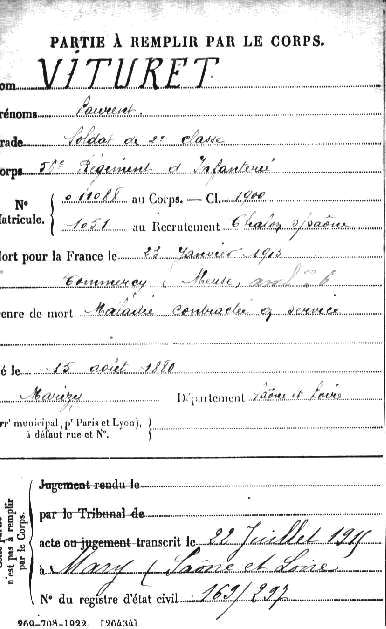 PARTIE À REMPLIR PAR LE CORPS.
om VITURET
rénoms Laurent
rade Soldat de 2e classe
orps Régiment d'Infanterie
N° 011088 au Corps. — Cl. 1900
Matricule. 1051 au Recrutement Chalon s/Saône
ort pour la France le 23 Janvier 1915
Commercy (Meuse)
enre de mort Maladie contractée en service
é le 15 août 1880
Marizy Département Saône et Loire
rr' municipal, p' Paris et Lyon),
à défaut rue et N°.
n'est pas à remplir
par le Corps.
Jugement rendu le
par le Tribunal de
acte ou jugement transcrit le 22 Juillet 1915
à Mary (Saône et Loire
N° du registre d'état civil 169/297
269-708-1922. [26434]